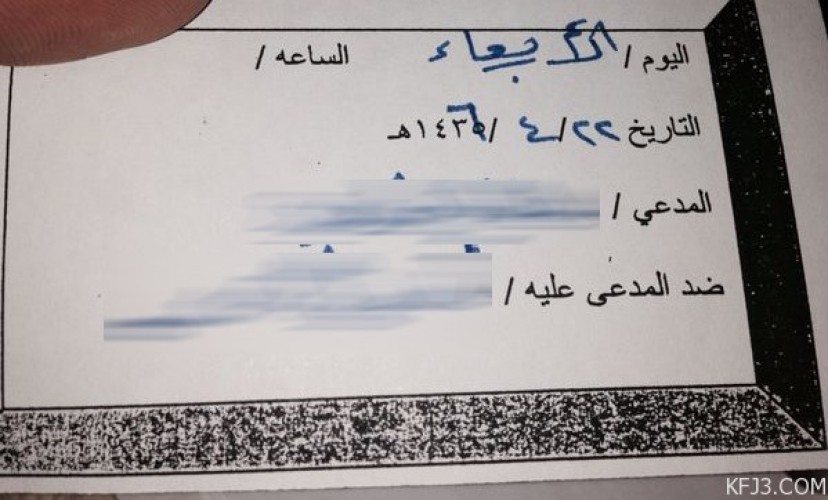 اليوم / الأربعاء الساعه /
التاريخ ٢٢/ ٤ /١٤٣٦هـ
المدعي /
ضد المدعى عليه /
KFJ3.COM